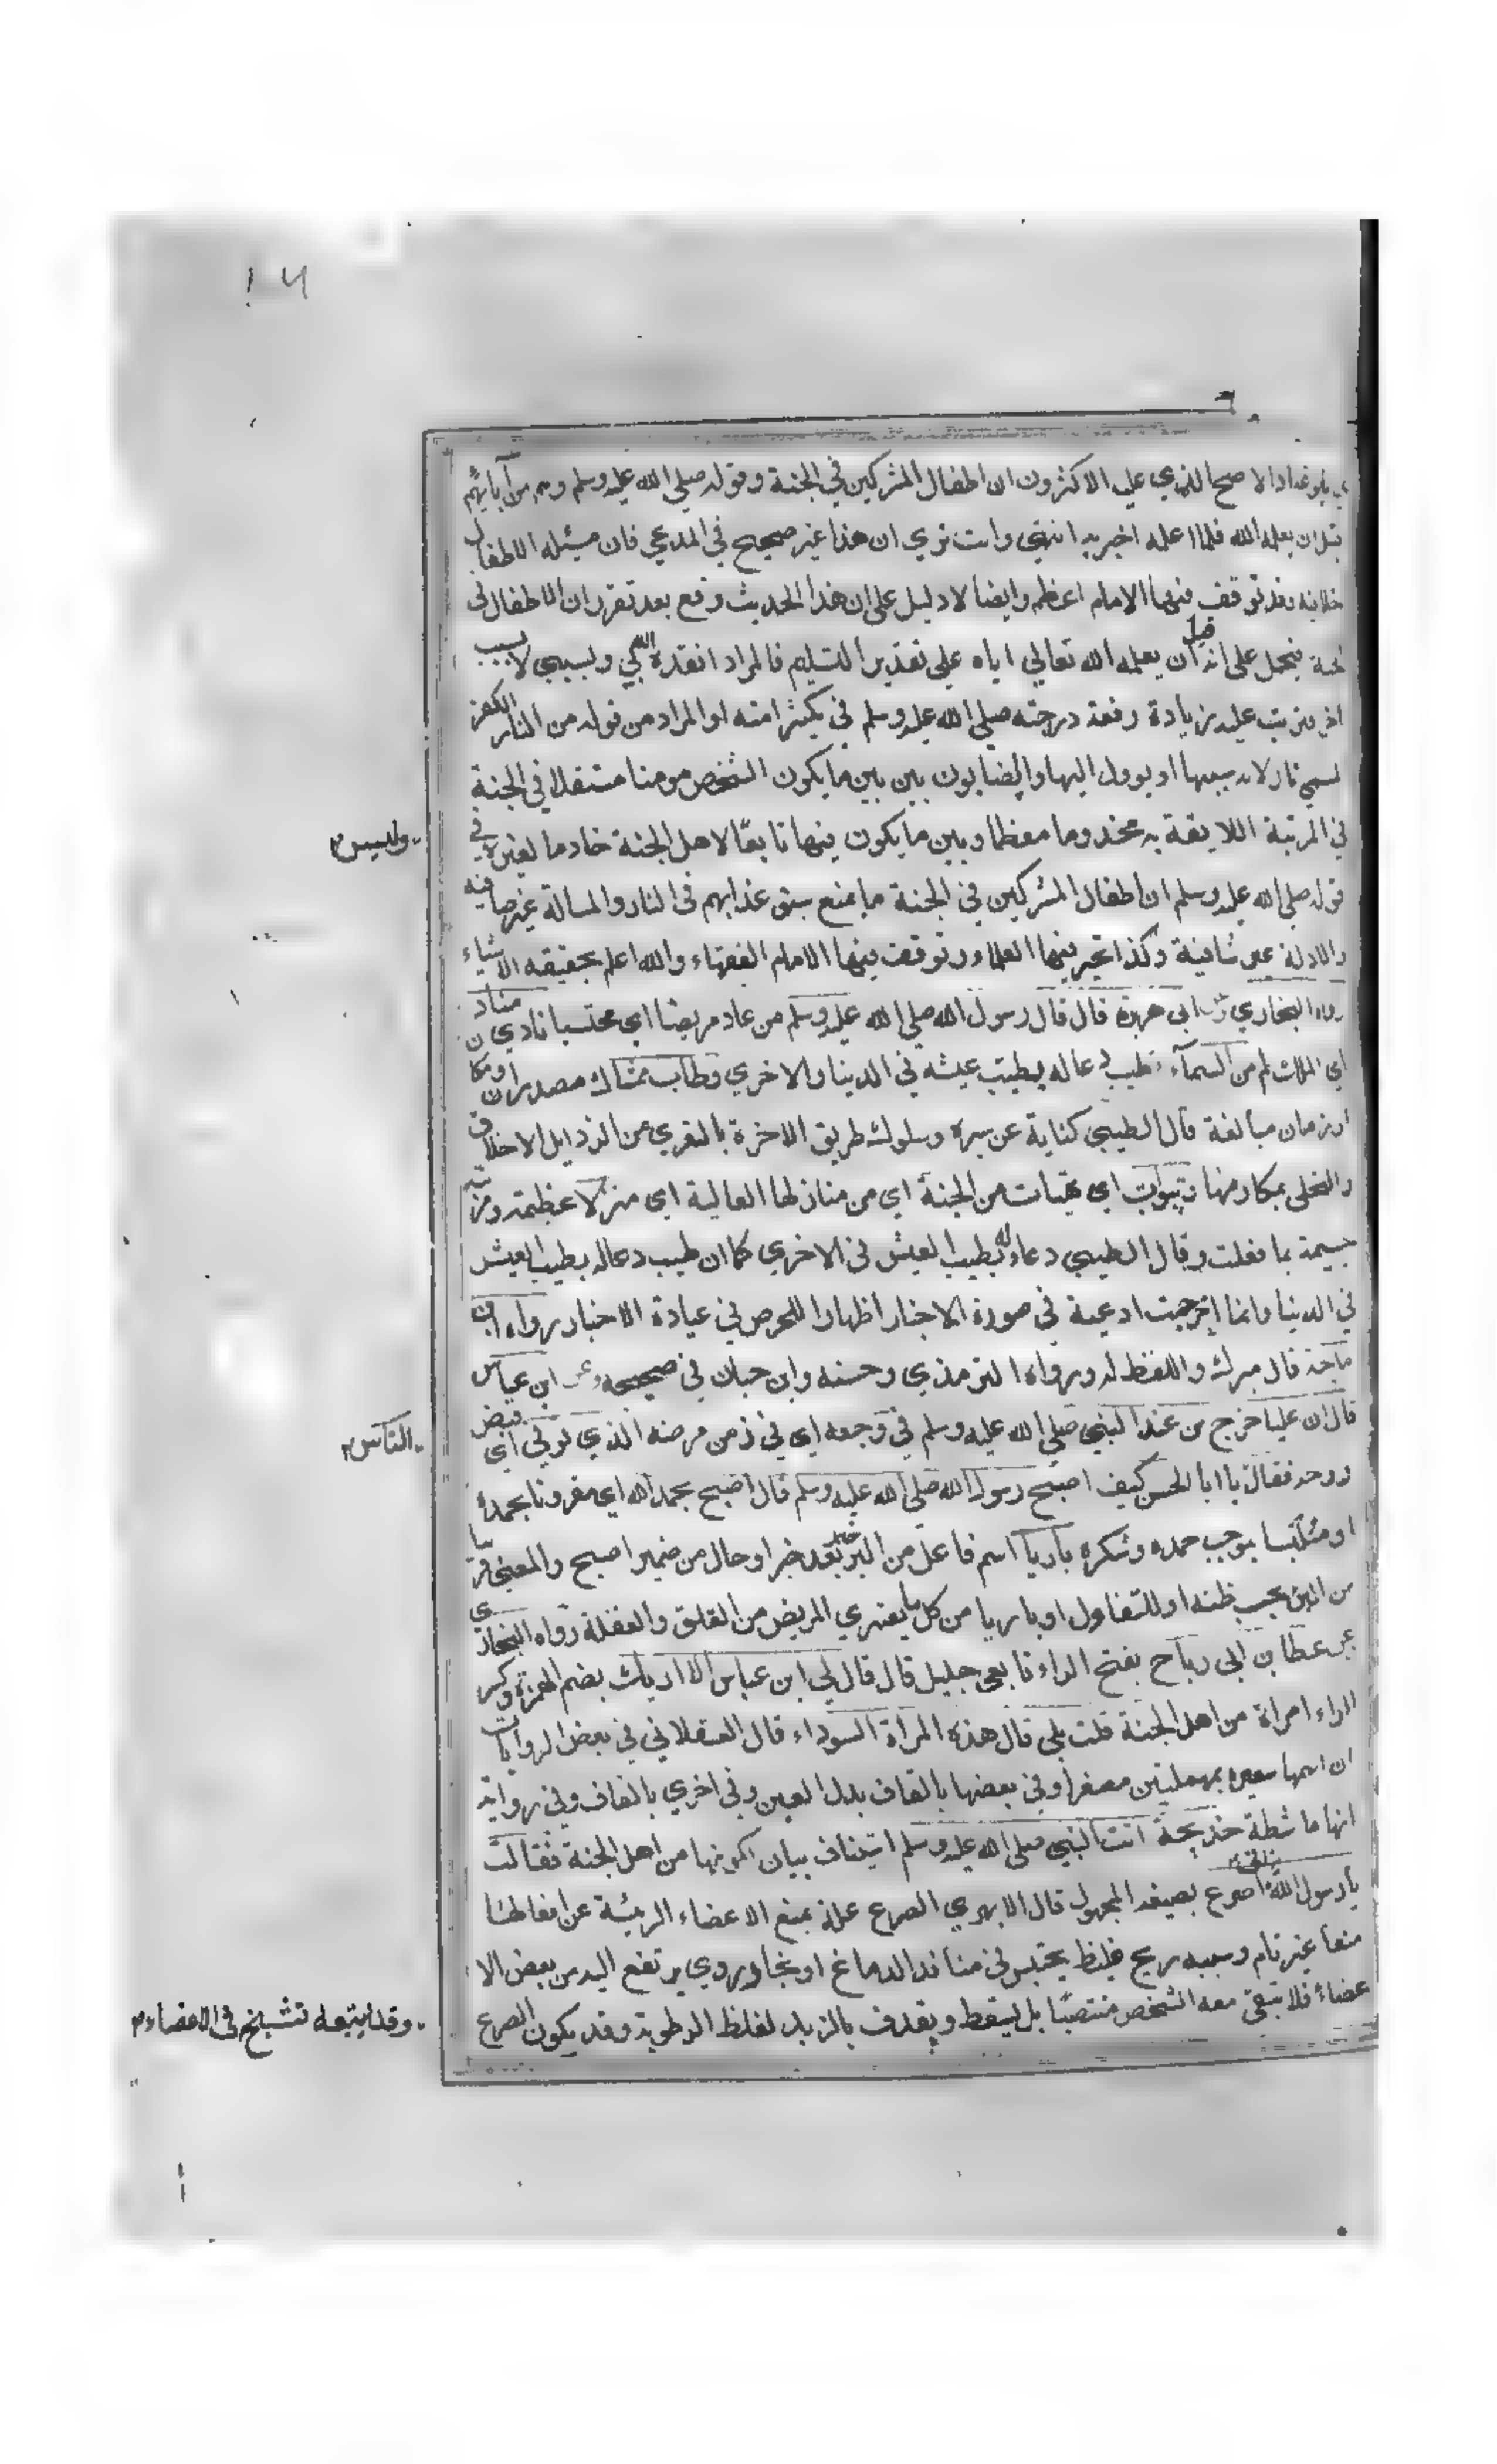 بلوغه اذ الاصح الذي عليه الاكثرون ان اطفال المشركين في الجنة وقوله صلى الله عليه وسلم وهم من آبائهم
قبل ان يعلمه الله فلما اعلمه اخبر به انتهي وانت تري ان هذا غير صحيح في المدعي فان مسئله الاطفال
خلافيه وقد توقف فيها الامام اعظم وايضا لا دليل علي ان هذا الحديث وقع بعد تقرر ان الاطفال في
الجنة فيحمل علي انه قبل ان يعلمه الله تعالي اياه علي تقدير التسليم فالمراد انقذه الله بي وبسببي لا بسبب
اخر فترتب عليه زيادة رفعة درجته صلي الله عليه وسلم في تكثير امته او المراد من قوله من النار الكفر
لسمي نارا لانه سببها او يوول اليها وايضا بون بين بين ما يكون الشخص مومنا مستقلا في الجنة
في المرتبة اللايقة به مخدوما معظما وبين ما يكون فيها تابعا لاهل الجنة خادما لغيره في
وليس
قوله صلي الله عليه وسلم ان اطفال المشركين في الجنة ما يمنع سبق عذابهم في النار والمسالة غير صافيه
والادلة غير شافية وكذا تحير فيها العلماء وتوقف فيها الامام الفقهاء والله اعلم بحقيقه الاشياء
رواه البخاري وعن ابي هريرة قال قال رسول الله صلي الله عليه وسلم من عاد مريضا اي محتسبا نادي مناد
اي الملك لم من السمآء طيب دعا له بطيب عيشه في الدنيا والاخري وطاب ممشاك مصدر او مكان
او زمان مبالغة قال الطيبي كناية عن سيره وسلوك طريق الاخرة بالتعري من الرذايل الاخلاق
والتحلي بمكارمها وتبوات اي تهيات من الجنة اي من منازلها العالية اي منزلا عظيمة ومرتبة
جسيمة بما فعلت وقال الطيبي دعاء له بطيب العيش في الاخري كما ان طيب دعا له بطيب العيش
في الدنيا وانما اخرجت ادعية في صورة الاخبار اظهارا للحرص في عيادة الاخبار رواه ابن
ماجة قال ميرك واللفظ له ورواه الترمذي وحسنه وابن حبان في صحيحه وعن ابن عباس
قال ان عليا خرج من عند النبي صلي الله عليه وسلم في وجعه اي في زمن مرضه الذي توفي اي قبض
روحه فقال يا ابا الحسن كيف اصبح رسول الله صلي الله عليه وسلم قال اصبح بحمد الله اي مقرونا بحمده
الناس
او متلبسا بوجب حمده وشكره بارئا اسم فاعل من البرء خبر بعد خبر او حال من ضمير اصبح والمعني قريبا
من البرء بحسب ظنه او للتفاول او باريا من كل ما يعتري المريض من القلق والغفلة رواه البخاري
عن عطا بن ابي رباح بفتح الراء تابعي جليل قال قال لي ابن عباس الا اريك بضم الهمزة وكسر
الراء امراة من اهل الجنة قلت بلي قال هذه المراة السوداء قال العسقلاني في بعض الروايات
ان اسمها سعيره بمهملتين مصغرا وفي بعضها بالقاف بدل العين وفي اخري بالكاف وفي رواية
انها ماشطة خديجة اتت النبي صلي الله عليه وسلم استيناف بيان لكونها من اهل الجنة فقالت
يا رسول الله اني اصرع بصيغه المجهول قال الابهري الصرع علة يمنع الاعضاء الرئيسة عن افعالها
منعا غير تام وسببه ريح غليظ يحتبس في منافذ الدماغ او بخار يروي يرتفع اليه من بعض الا
عضاء فلا تبقي معه الشخص منتصبا بل يسقط ويقذف بالزبد لغلظ الرطوبة وقد يكون الصرع
وقد يتبعه تشنج في الاعضاء